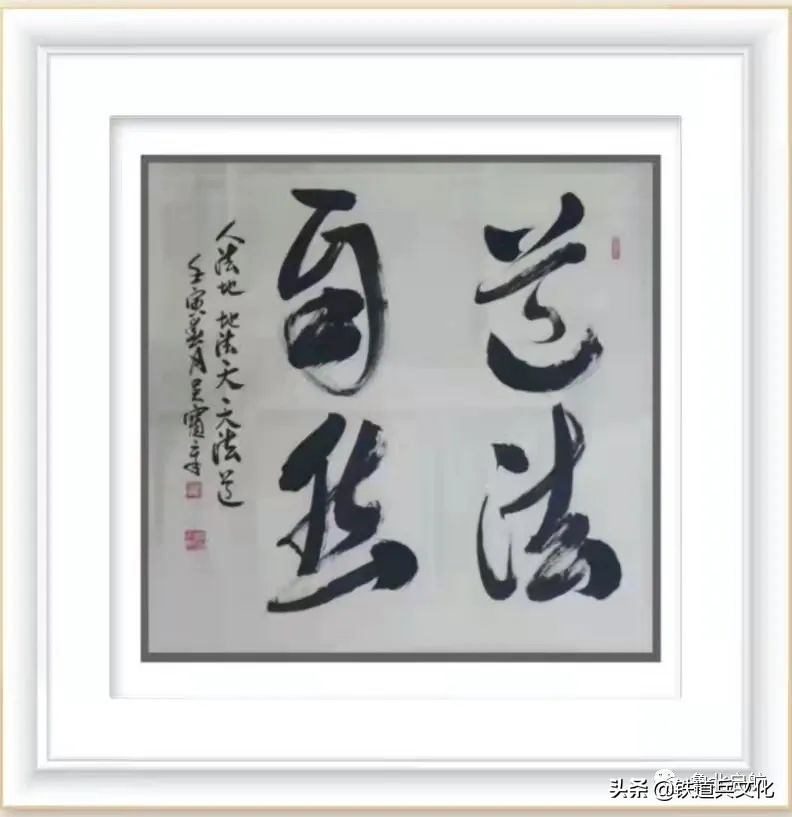 道法
自然
人法地 地法天 天法道
壬寅 月
头条 @铁道兵文化